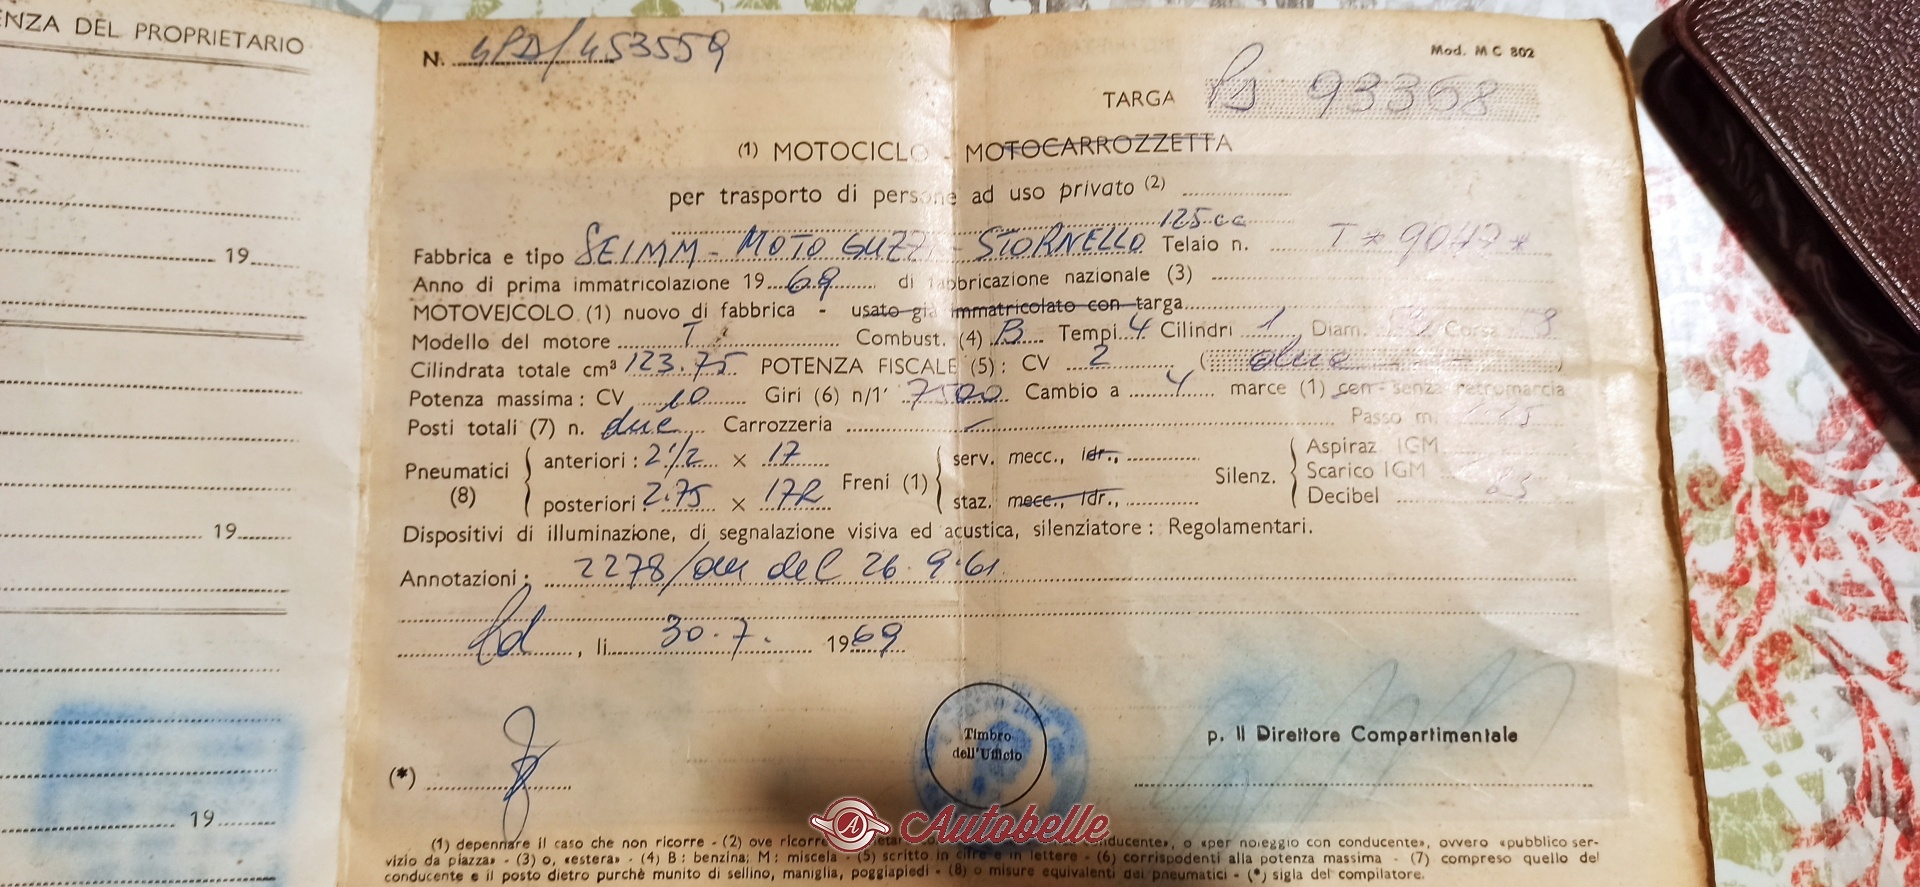 ENZA DEL PROPRIETARIO
19
19
19
N. 4PD/453559
Mod. MC 802
TARGA PD 93368
(1) MOTOCICLO - MOTOCARROZZETTA
per trasporto di persone ad uso privato (2)
125cc
Fabbrica e tipo SEIMM - MOTO GUZZI - STORNELLO Telaio n. T * 9047 *
Anno di prima immatricolazione 1969 di fabbricazione nazionale (3)
MOTOVEICOLO (1) nuovo di fabbrica - usato già immatricolato con targa
Modello del motore T Combust. (4) B Tempi 4 Cilindri 1 Diam. 52 Corsa 58
Cilindrata totale cm³ 123.75 POTENZA FISCALE (5): CV 2 (due)
Potenza massima: CV 10 Giri (6) n/1' 7500 Cambio a 4 marce (1) con - senza retromarcia
Posti totali (7) n. due Carrozzeria - Passo m.
Pneumatici (8) anteriori: 2 1/2 x 17 Freni (1) serv. mecc., idr., Silenz. Aspiraz IGM
Scarico IGM
posteriori 2.75 x 17R staz. mecc., idr., Decibel 83
Dispositivi di illuminazione, di segnalazione visiva ed acustica, silenziatore: Regolamentari.
Annotazioni: 2278/om del 26.9.61
Pd, li 30.7. 1969
Timbro
dell'Ufficio
p. Il Direttore Compartimentale
(*)
Autobelle
(1) depennare il caso che non ricorre - (2) ove ricorre conducente», o «per noleggio con conducente», ovvero «pubblico ser-
vizio da piazza» - (3) o, «estera» - (4) B: benzina; M: miscela - (5) scritto in cifre e in lettere - (6) corrispondenti alla potenza massima - (7) compreso quello del
conducente e il posto dietro purchè munito di sellino, maniglia, poggiapiedi - (8) o misure equivalenti dei pneumatici - (*) sigla del compilatore.